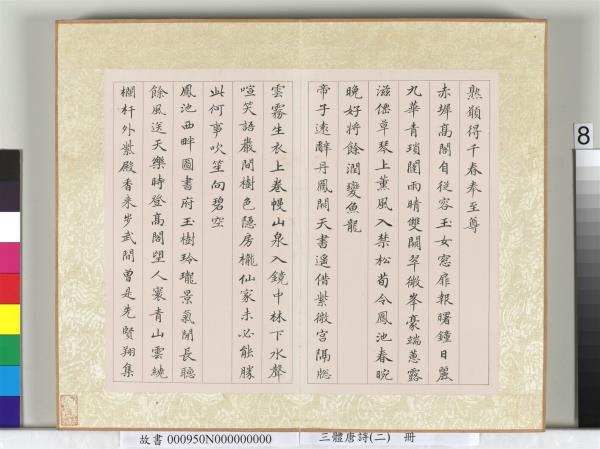 熟願得千春奉至尊
赤墀高閣自從容玉女窓扉報曙鐘日麗
九華青瑣闥雨晴雙闕翠微峯豪端蕙露
滋僊草琴上薰風入禁松荀令鳳池春晼
晚好將餘潤變魚龍
帝子遠辭丹鳳闕天書遙借紫微宮隔牕
雲霧生衣上卷幔山泉入鏡中林下水聲
喧笑語巖間樹色隱房櫳仙家未必能勝
此何事吹笙向碧空
鳳池西畔圖書府玉樹玲瓏景氣閒長聽
餘風送天樂時登高閣望人寰青山雲繞
欄杆外紫殿香來步武間曾是先賢翔集
故書 000950N000000000
三體唐詩(二) 冊
8